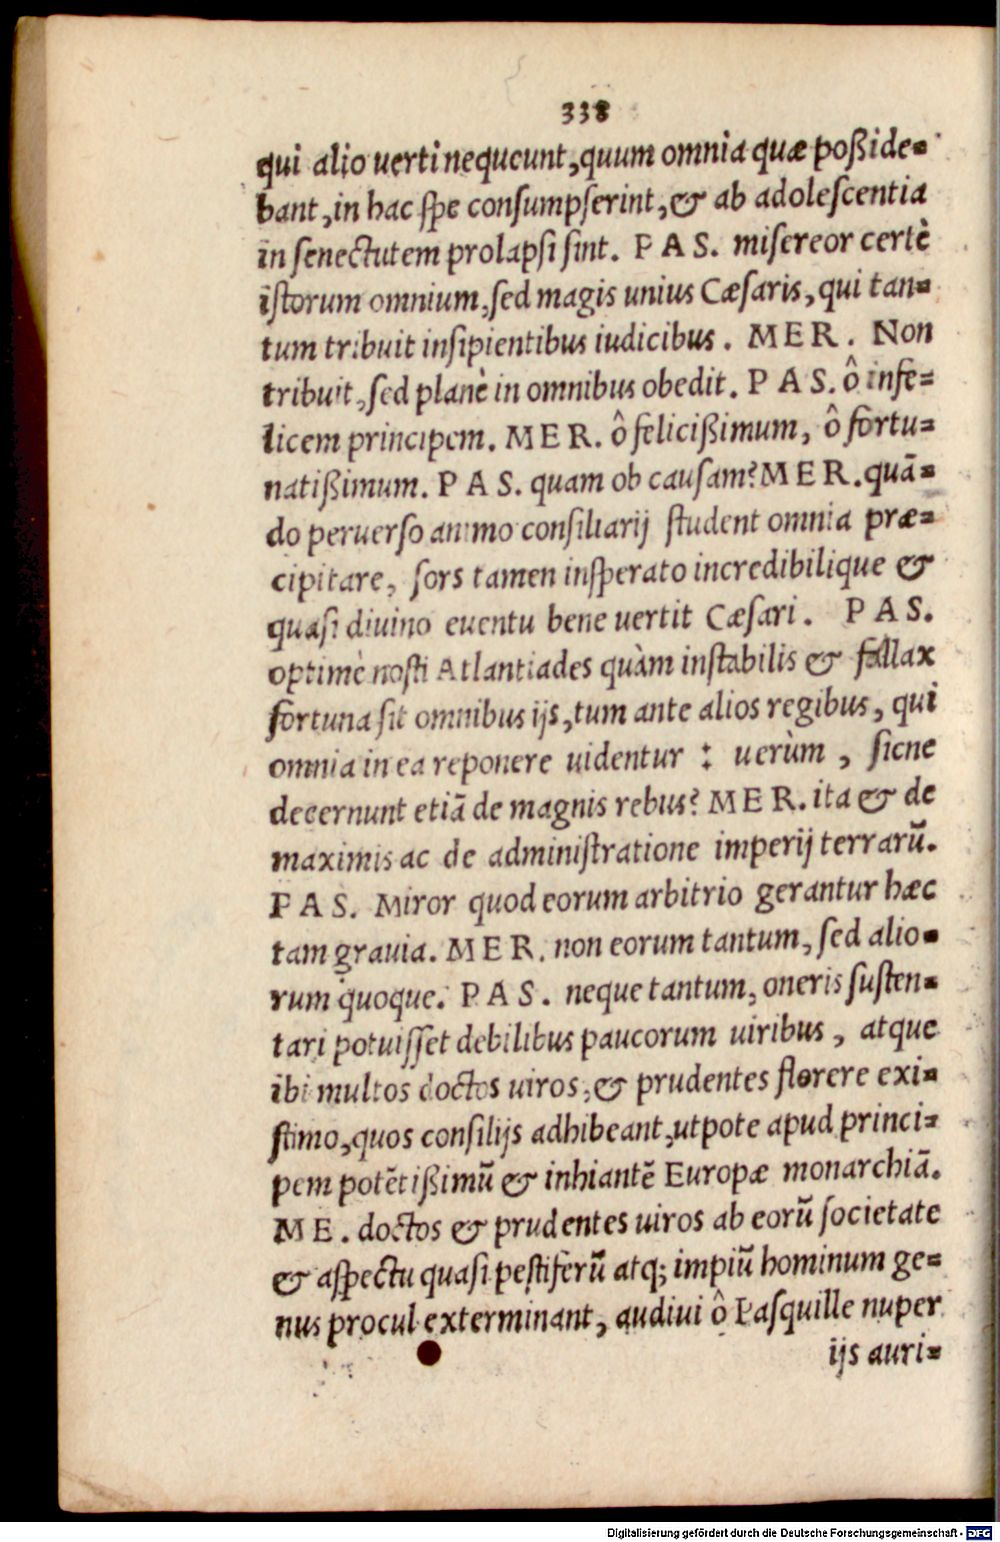 338
qui alio uerti nequeunt, quum omnia quæ poßide-
bant, in hac ſpe conſumpſerint, & ab adoleſcentia
in ſenectutem prolapſi ſint. PAS. miſereor certè
iſtorum omnium, ſed magis unius Cæſaris, qui tan-
tum tribuit inſipientibus iudicibus. MER. Non
tribuit, ſed planè in omnibus obedit. PAS. ô infe-
licem principem. MER. ô felicißimum, ô fortu-
natißimum. PAS. quam ob cauſam? MER. quā-
do peruerſo animo conſiliarij ſtudent omnia præ-
cipitare, ſors tamen inſperato incredibilique &
quaſi diuino euentu bene uertit Cæſari. PAS.
optimè noſti Atlantiades quàm inſtabilis & fallax
fortuna ſit omnibus ijs, tum ante alios regibus, qui
omnia in ea reponere uidentur : uerùm, ſicne
decernunt etiā de magnis rebus? MER. ita & de
maximis ac de adminiſtratione imperij terrarū.
PAS. Miror quod eorum arbitrio gerantur hæc
tam grauia. MER. non eorum tantum, ſed alio-
rum quoque. PAS. neque tantum, oneris ſuſten-
tari potuiſſet debilibus paucorum uiribus, atque
ibi multos doctos uiros, & prudentes florere exi-
ſtimo, quos conſilijs adhibeant, utpote apud princi-
pem potētißimū & inhiantē Europæ monarchiā.
ME. doctos & prudentes uiros ab eorū ſocietate
& aſpectu quaſi peſtiferū atq; impiū hominum ge-
nus procul exterminant, audiui ô Paſquille nuper
ijs auri-
Digitalisierung gefördert durch die Deutsche Forschungsgemeinschaft - DFG